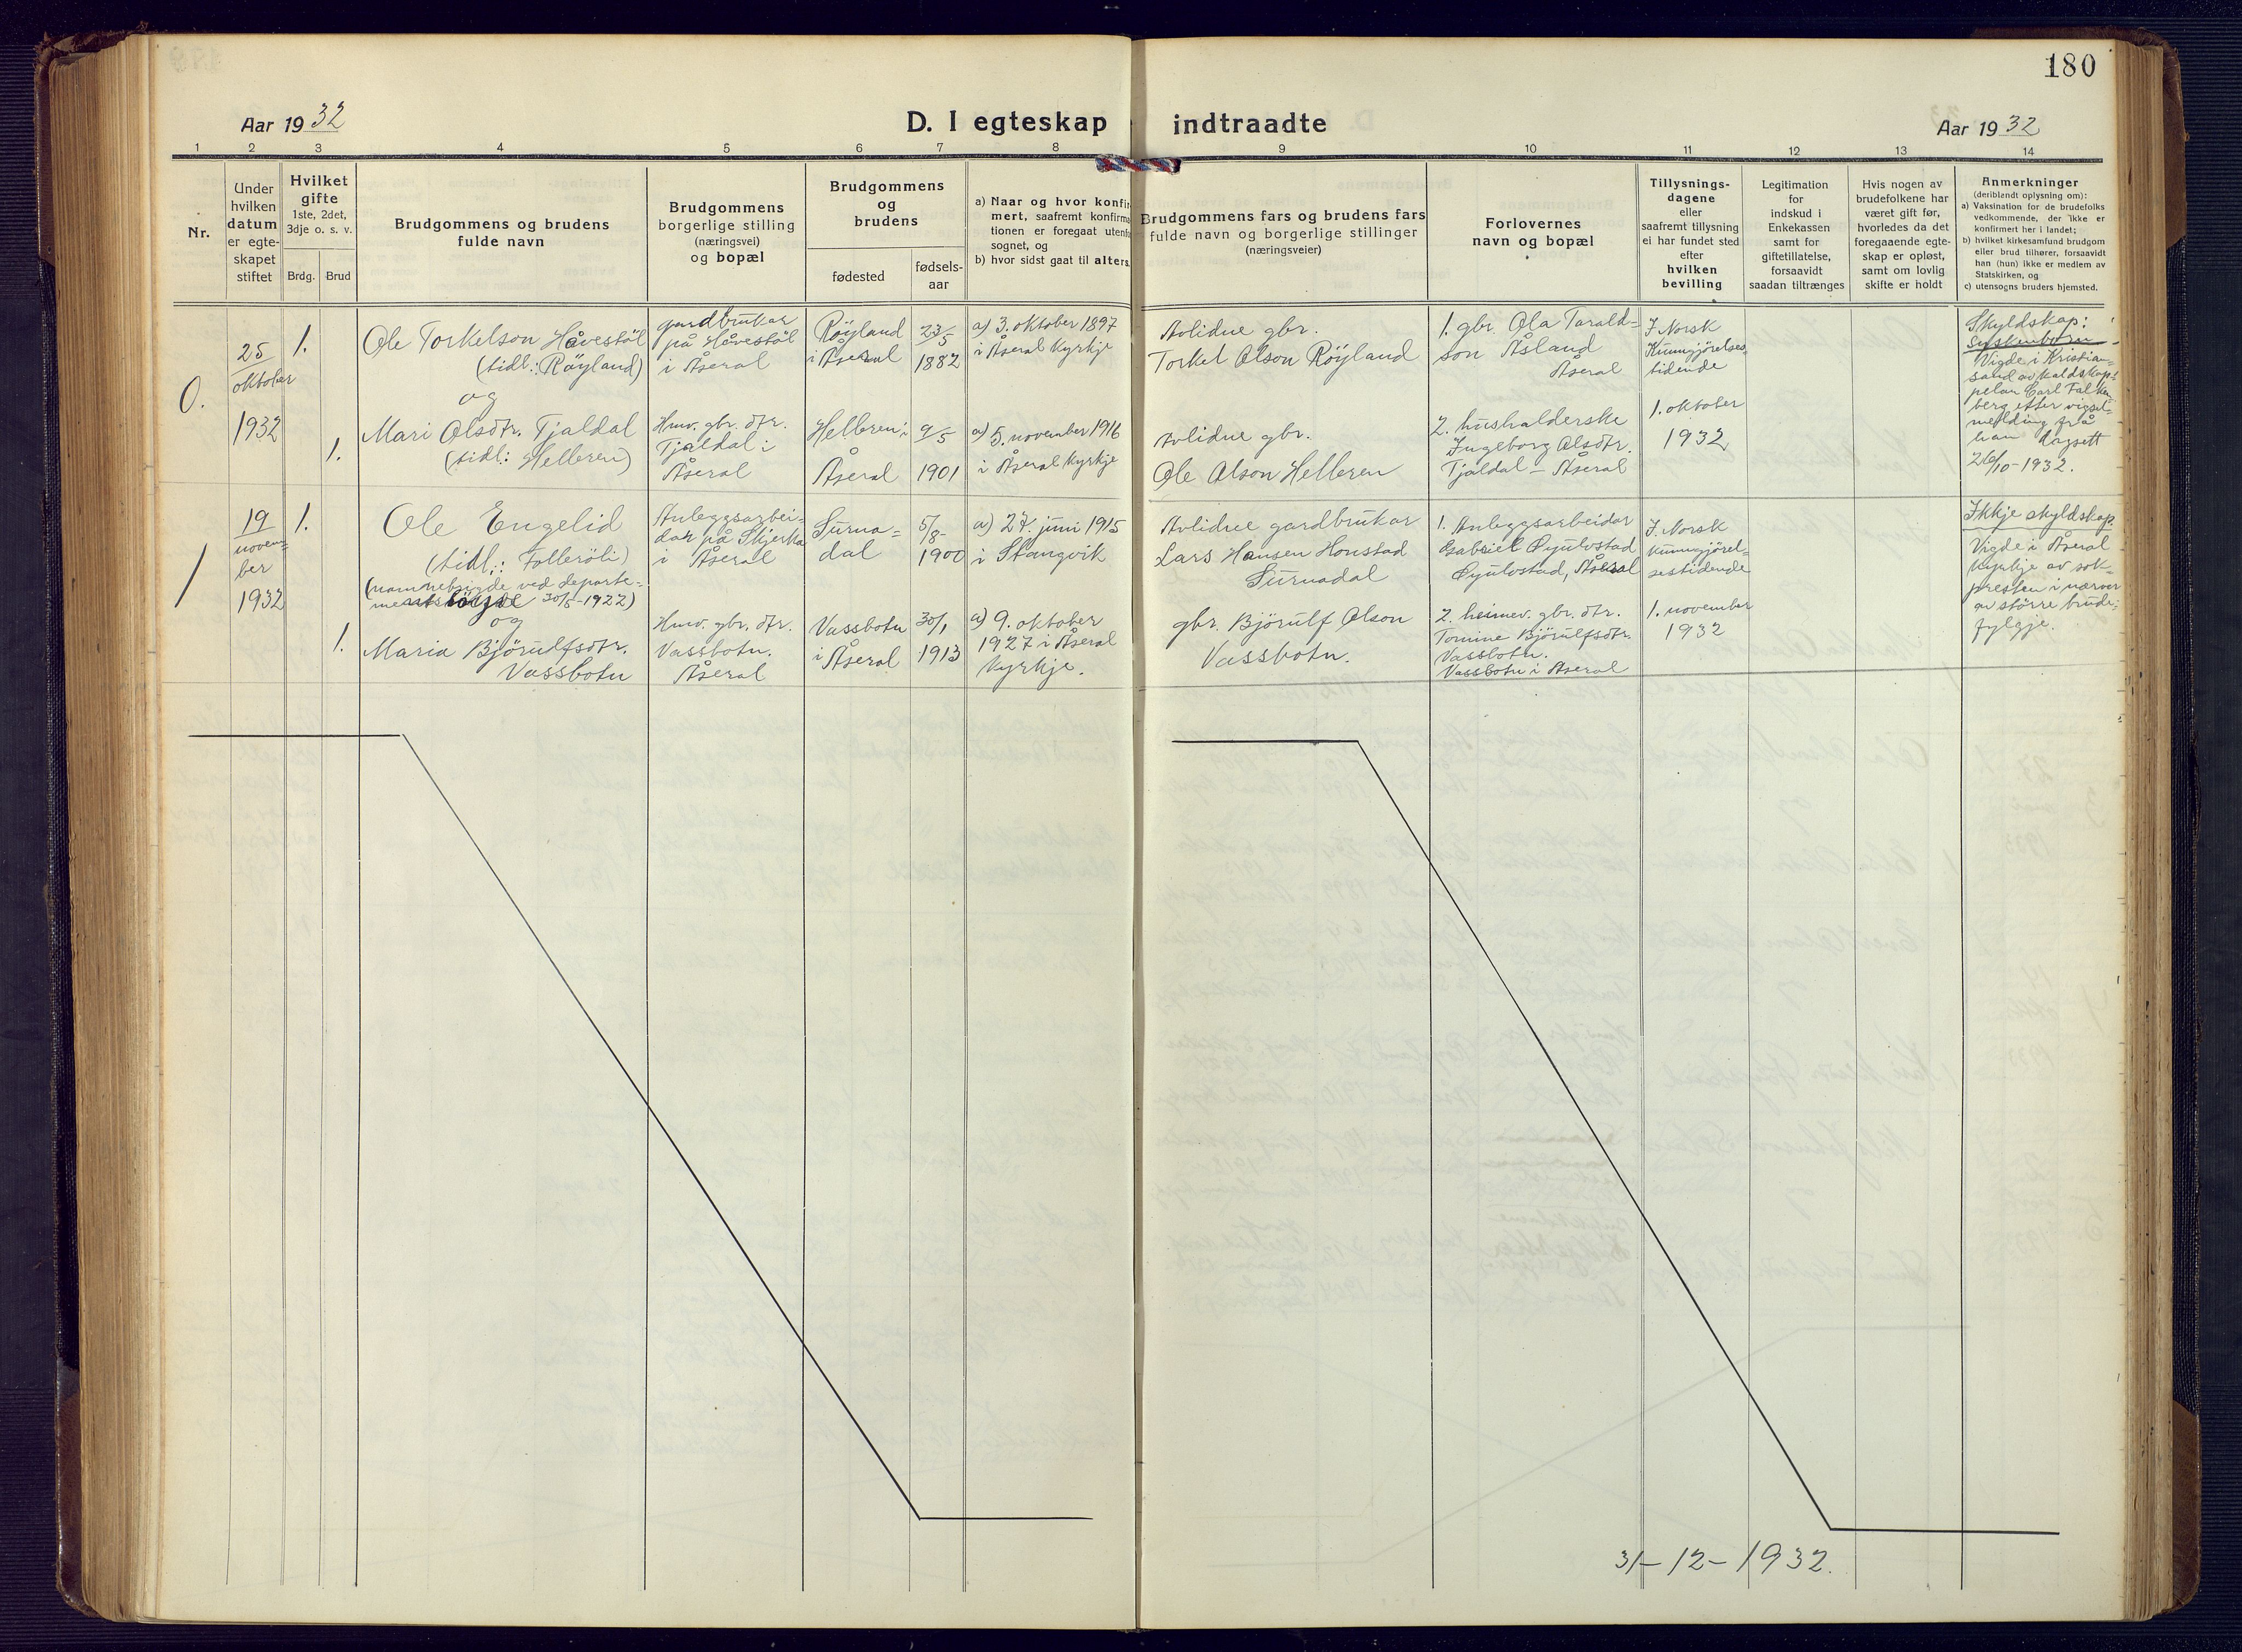 180
Aar 1932
D. I egteskap indtraadte
Aar 1932
1 2 3 4 5 6 7 8 9 10 11 12 13 14
Nr.
Under
hvilken
datum
er egte-
skapet
stiftet
Hvilket
gifte
1ste, 2det,
3dje o. s. v.
Brdg. Brud
Brudgommens og brudens
fulde navn
Brudgommens
borgerlige stilling
(næringsvei)
og bopæl
Brudgommens
og
brudens
fødested
fødsels-
aar
a) Naar og hvor konfir-
mert, saafremt konfirma-
tionen er foregaat utenfor
sognet, og
b) hvor sidst gaat til alters.
Brudgommens fars og brudens fars
fulde navn og borgerlige stillinger
(næringsveier)
Forlovernes
navn og bopæl
Tillysnings-
dagene
eller
saafremt tillysning
ei har fundet sted
efter
hvilken
bevilling
Legitimation
for
indskud i
Enkekassen
samt for
giftetillatelse,
forsaavidt
saadan tiltrænges
Hvis nogen av
brudefolkene har
været gift før,
hvorledes da det
foregaaende egte-
skap er opløst,
samt om lovlig
skifte er holdt
Anmerkninger
(deriblandt oplysning om):
a) Vaksination for de brudefolks
vedkommende, der ikke er
konfirmert her i landet;
b) hvilket kirkesamfund brudgom
eller brud tilhører, forsaavidt
han (hun) ikke er medlem av
Statskirken, og
c) utensogns bruders hjemsted.
0.
25
oktober
1932
1.
Ole Torkelson Håvestöl
(tidl.: Röyland)
og
1.
Mari Olsdtr. Tjaldal
(tidl.: Helleren)
gardbrukar
på Håvestöl
i Åseral
Hmv. gbr. dtr.
Tjaldal i
Åseral
Röyland
i Åseral
Helleren i
Åseral
23/5
1882
9/5
1901
a) 3. oktober 1897
i Åseral kyrkje
a) 5. november 1916
i Åseral kyrkje
Avlidne gbr.
Torkel Olson Röyland
Avlidne gbr.
Ole Olson Helleren
1. gbr. Ola Tarald-
son Åsland
Åseral
2. hushalderske
Ingeborg Olsdtr.
Tjaldal - Åseral
I Norsk
Kunngjörelses-
tidende
1. oktober
1932
Skyldskap:
Syskenborn
Vigde i Kristian-
sand av kaldskap-
pelan Carl Falken-
berg etter vigsel-
melding frå
han dagsett
26/10-1932.
1
19
novem-
ber
1932
1.
Ole Engelid
(tidl.: Tolleröli)
(namnebrigde ved departe-
ments 30/5-1922)
og
1.
Maria Björulfsdtr.
Vassbotn
Anleggsarbei-
dar på Skjerka
i Åseral
Hmv. gbr. dtr.
Vassbotn.
Åseral
Surna-
dal
Vassbotn
i Åseral
5/8-
1900
30/1
1913
a) 27. juni 1915
i Stangvik
a) 9. oktober
1927 i Åseral
kyrkje.
Avlidne gardbrukar
Lars Hansen Honstad
Surnadal
gbr. Björulf Olson
Vassbotn.
1. Anleggsarbeidar
Gabriel Øyulvstad
Øyulvstad, Åseral
2. heimev. gbr. dtr.
Tomine Björulfsdtr.
Vassbotn.
Vassbotn i Åseral
I Norsk
kunngjörel-
sestidende
1. november
1932
Ikkje skyldskap
Vigde i Åseral
kyrkje av sok-
presten i nærver
av större brude-
fylgje.
31-12-1932.